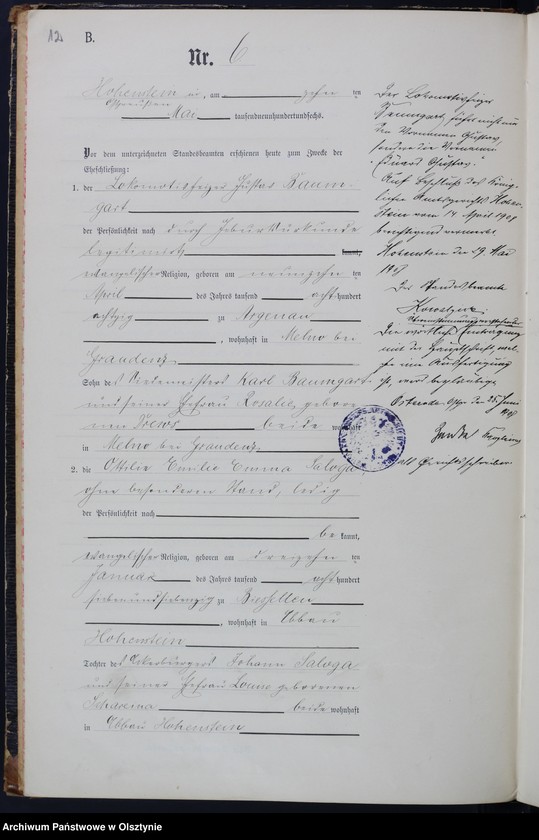 12.
B.
Nr. 6
Hohenstein in, am zehn ten
Ostpreußen
Mai tausendneunhundertundsechs.
Vor dem unterzeichneten Standesbeamten erschienen heute zum Zwecke der
Eheschließung:
1. der Lokomotivheizer Gustav Baum-
gart
der Persönlichkeit nach durch Geburtsurkunde
legitimirt kannt,
evangelischer Religion, geboren am neunzehn ten
April des Jahres tausend acht hundert
achtzig zu Argenau
, wohnhaft in Melno bei
Graudenz
Sohn des Karl Baumgart
und seiner Ehefrau Rosalie, gebore-
nen Drews beide wohnhaft
in Melno bei Graudenz.
2. die Ottilie Emilie Emma Saloga
ohne besonderen Stand, ledig
der Persönlichkeit nach
be kannt,
evangelischer Religion, geboren am dreizehn ten
Januar des Jahres tausend acht hundert
siebenundsiebenzig zu
, wohnhaft in Abbau
Hohenstein
Tochter des Ackerbürgers Johann Saloga
und seiner Ehefrau Louise geborenen
beide wohnhaft
in Abbau Hohenstein
Der Lokomotivheizer
Baumgart, führt nicht nur
den Vornamen Gustav,
sondern die Vornamen
"Eduard Gustav."
Auf Beschluß des König-
lichen Amtsgerichts Hohen-
stein vom 14 April 1908
berichtigend vermerkt.
Hohenstein den 29. Mai
1908
Der Standesbeamte
Die wörtliche Eintragung
mit der Hauptschrift
ist, wird beglaubigt.
Osterode Ostpr. den 25. Juni
1908
als Gerichtsschreiber
Archiwum Państwowe w Olsztynie